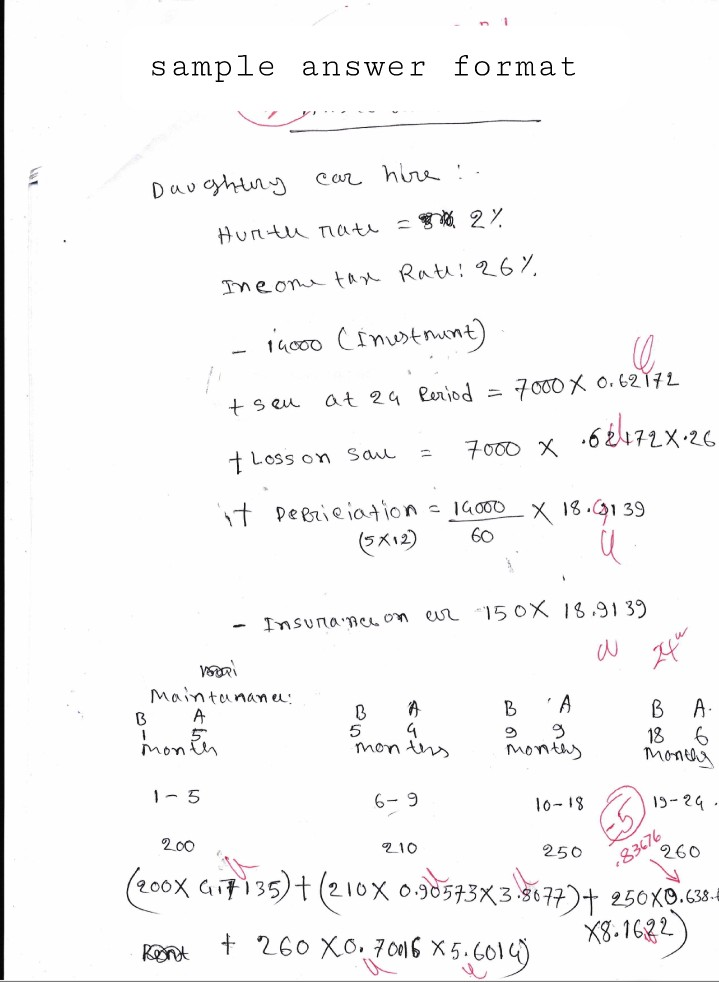 sample answer format
Daughtery car hire :-
Hurtle rate = 2%
Income tax Rate: 26%
- 14000 (Investment)
+ sell at 24 Period = 7000 X 0.62172
+ Loss on sale = 7000 X .62172 X .26
+ Depreciation = 14000/60 X 18.9139
(5X12)
- Insurance on car 150X 18.9139
24
Maintanance:
B A B A B A B A.
1 5 5 4 9 9 18 6
Month Months Months Months
1-5 6-9 10-18 19-24
-5
200 210 250 .83676 260
(200X 4.7135) + (210X 0.90573X3.8077) + 250X0.638
X8.1622)
+ 260 X0.70016 X5.6014)